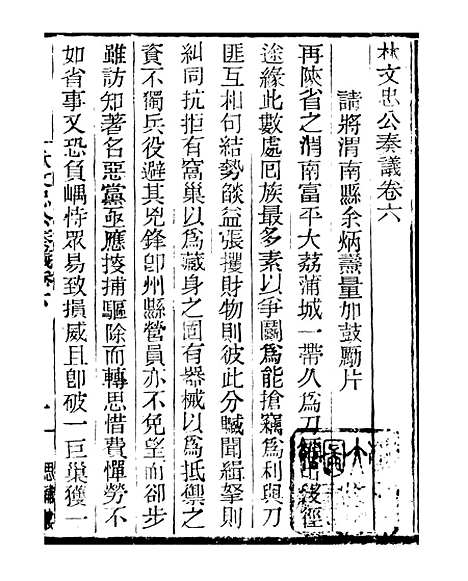 林文忠公奏議卷六
請將渭南縣余炳燾量加鼓勵片
再陝省之渭南富平大荔蒲城一帶久爲刀
途緣此數處回族最多素以爭鬭爲能搶竊爲利與刀
匪互相句結勢燄益張攫財物則彼此分贓聞緝拏則
糾同抗拒有窩巢以爲藏身之固有器械以爲抵禦之
資不獨兵役避其兇鋒卽州縣營員亦不免望而卻步
雖訪知著名惡黨亟應按捕驅除而轉思惜費憚勞不
如省事又恐負嵎恃眾易致損威且卽破一巨巢獲一